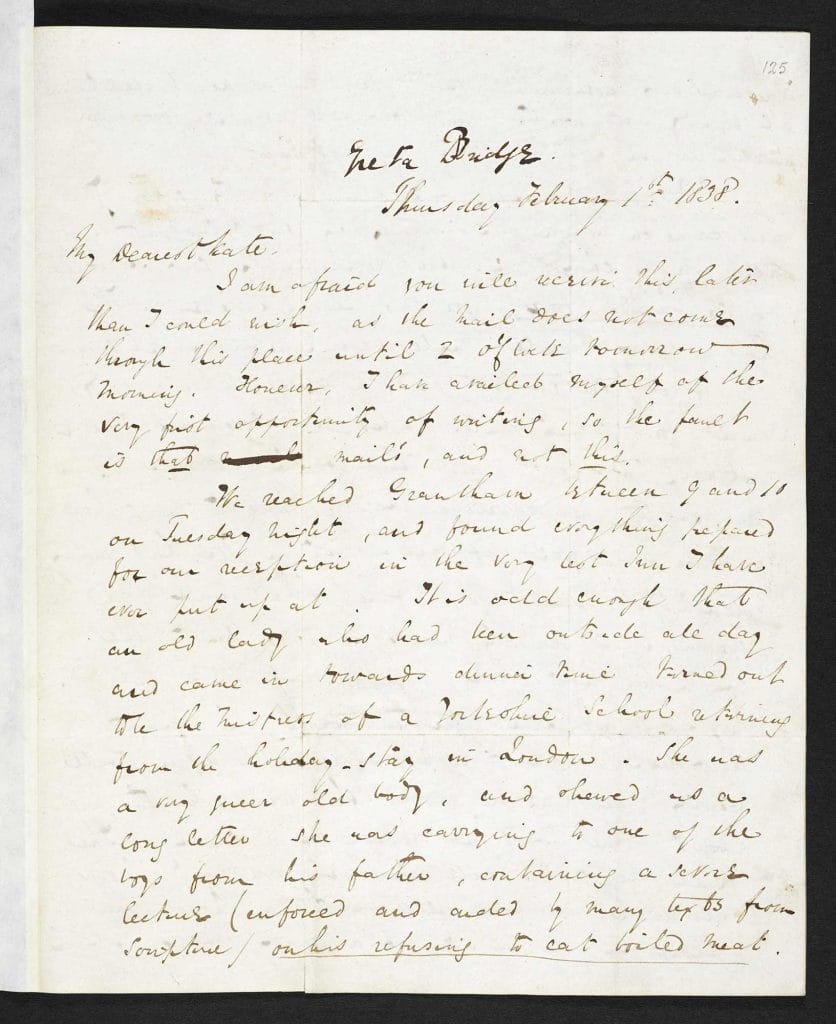 125
Greta Bridge.
Thursday February 1st. 1838.
My Dearest Kate.
I am afraid you will receive this later
than I could wish, as the Mail does not come
through this place until 2 o'Clock tomorrow
morning. However, I have availed myself of the
very first opportunity of writing, so the fault
is that mail's, and not this.
We reached Grantham between 9 and 10
on Tuesday night, and found everything prepared
for our reception in the very best Inn I have
ever put up at. It is odd enough that
an old lady who had been outside all day
and came in towards dinner time turned out
to be the Mistress of a Yorkshire School returning
from the holiday-stay in London. She was
a very queer old body, and shewed us a
long letter she was carrying to one of the
boys from his father, containing a severe
lecture (enforced and aided by many texts from
Scripture) on his refusing to eat boiled meat.